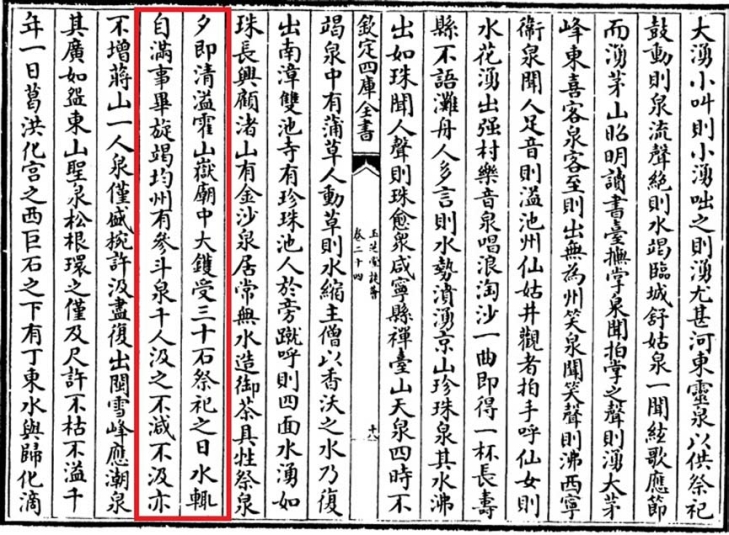 大湧小叫則小湧咄之則湧尤甚河東靈泉以供祭祀
鼓動則泉流聲絶則水竭臨城舒姑泉一聞絃歌應節
而湧茅山昭明讀書臺撫掌泉聞拍掌之聲則湧大茅
峰東喜客泉客至則出無為州笑泉聞笑聲則沸西寧
衛泉聞人足音則溢池州仙姑井觀者拍手呼仙女則
水花湧出强村樂音泉唱浪淘沙一曲即得一杯長壽
縣不語灘舟人多言則水勢濆湧京山珍珠泉其水沸
出如珠聞人聲則珠愈衆咸寧縣禪臺山天泉四時不
欽定四庫全書
玉芝堂談薈
卷二十四
竭泉中有蒲草人動草則水縮主僧以香沃之水乃復
出南漳雙池寺有珍珠池人於旁蹴呼則四面水湧如
珠長興顧渚山有金沙泉居常無水造御茶具牲祭泉
夕即清溢霍山嶽廟中大鑊受三十石祭祀之日水輒
自滿事畢旋竭均州有參斗泉千人汲之不減不汲亦
不增蔣山一人泉僅盛捥許汲盡復出閩雪峰應潮泉
其廣如盌東山聖泉松根環之僅及尺許不枯不溢千
年一日葛洪化宫之西巨石之下有丁東水與歸化滴